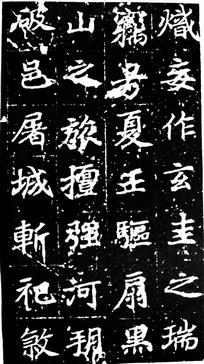 熾妄作玄圭之瑞
竊号夏王驅扇黑
山之旅擅强河朔
破邑屠城斬祀殺